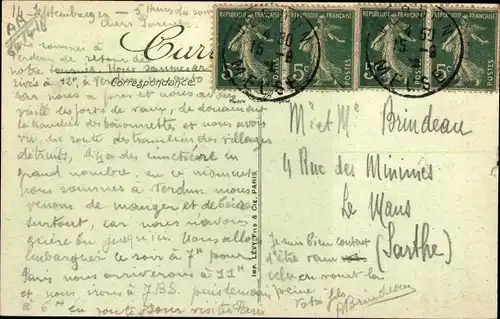 14 Septembre
5 Heures du soir
Chers Parents
Nous sommes à
Verdun de retour de
notre tournée. Nous sommes ar
rivés à
car nous avons pris et nous avons
visité les forts de Vaux, de Douaumont
la tranchée des baïonnettes et nous avons
vu en route des tranchées des villages
détruits, il y a des cimetières en
grand nombre, en ce moment
nous sommes à Verdun nous
venons de manger et de boire
surtout, car nous n'avons
guère bu jusqu'ici. Nous allons
embarquer le soir à 7h pour
Paris nous arriverons à 11h
et nous irons à J.B.S. puis demain
à 6h en route pour visiter Paris
Je suis bien content
d'être venu
cela en vaut la
peine
Votre fils
ABrindeau
Correspondance
IMP. LÉVY FILS & CIE, PARIS
REPUBLIQUE FRANÇAISE
5c POSTES
REPUBLIQUE FRANÇAISE
5c POSTES
REPUBLIQUE FRANÇAISE
5c POSTES
REPUBLIQUE FRANÇAISE
5c POSTES
Mr et Me Brindeau
4 Rue des Minimes
Le Mans
(Sarthe)